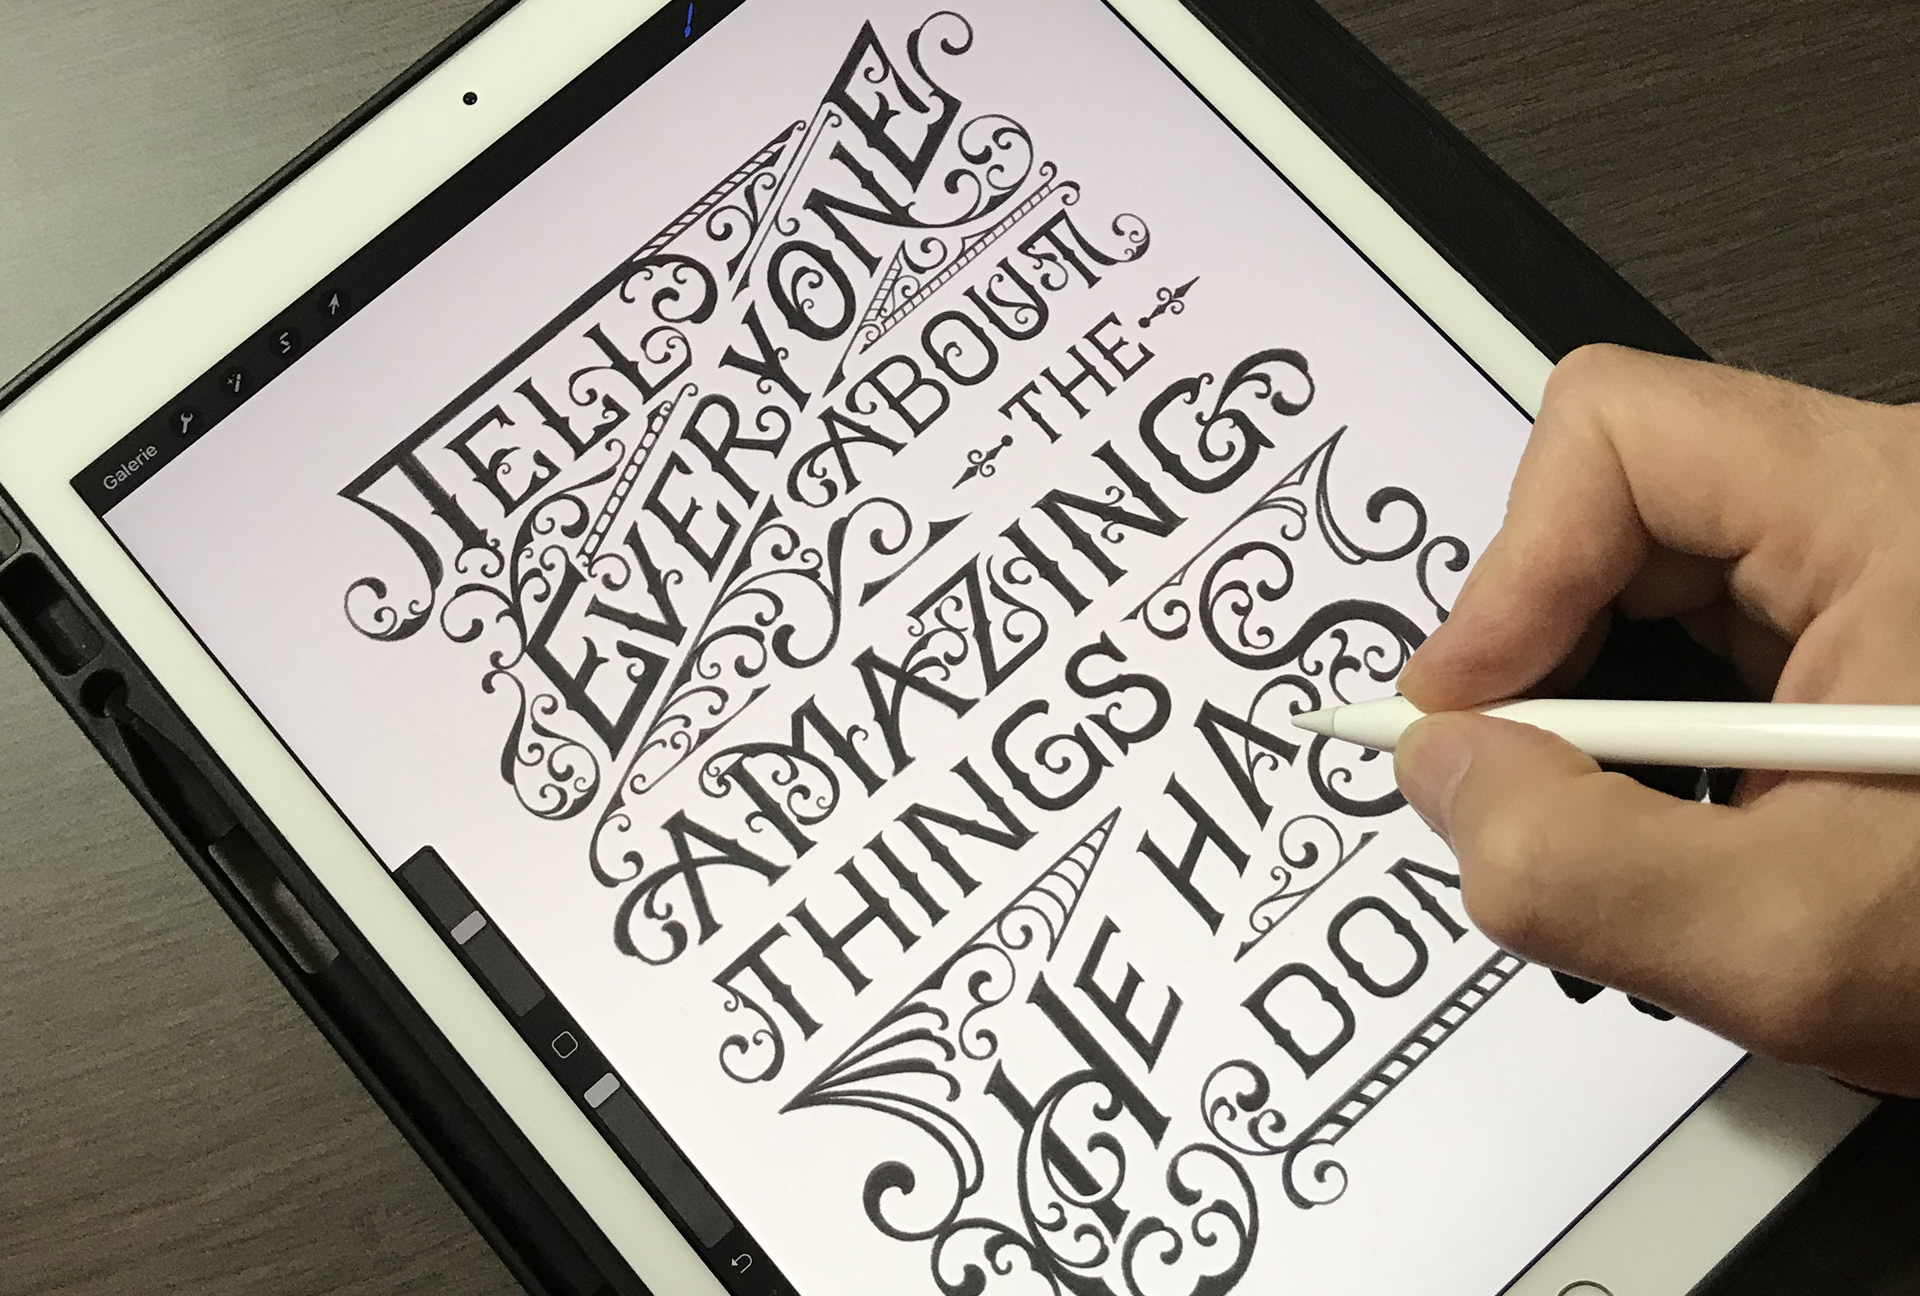 Galerie
TELL
EVERYONE
ABOUT
THE
AMAZING
THINGS
HE HAS
DON